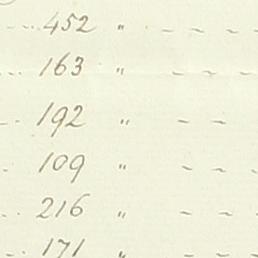 452 " - - -
163 " - - -
192 " - - -
109 " - - -
216 " - - -
171 " - - -